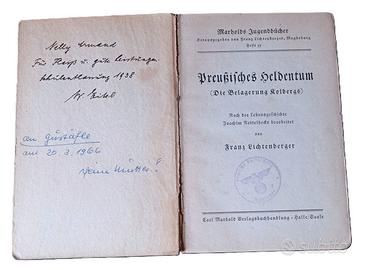 Nelly Ermand
Für Fleiß u. gute Leistungen
Schulentlassung 1938
an Gustäfle
am 20.3.1966
deine Mutter!
Marholds Jugendbücher
Herausgegeben von Franz Lichtenberger, Magdeburg
Heft
Preußisches Heldentum
(Die Belagerung Kolbergs)
Nach der Lebensgeschichte
Joachim Nettelbecks bearbeitet
von
Franz Lichtenberger
Carl Marhold Verlagsbuchhandlung · Halle/Saale
subito